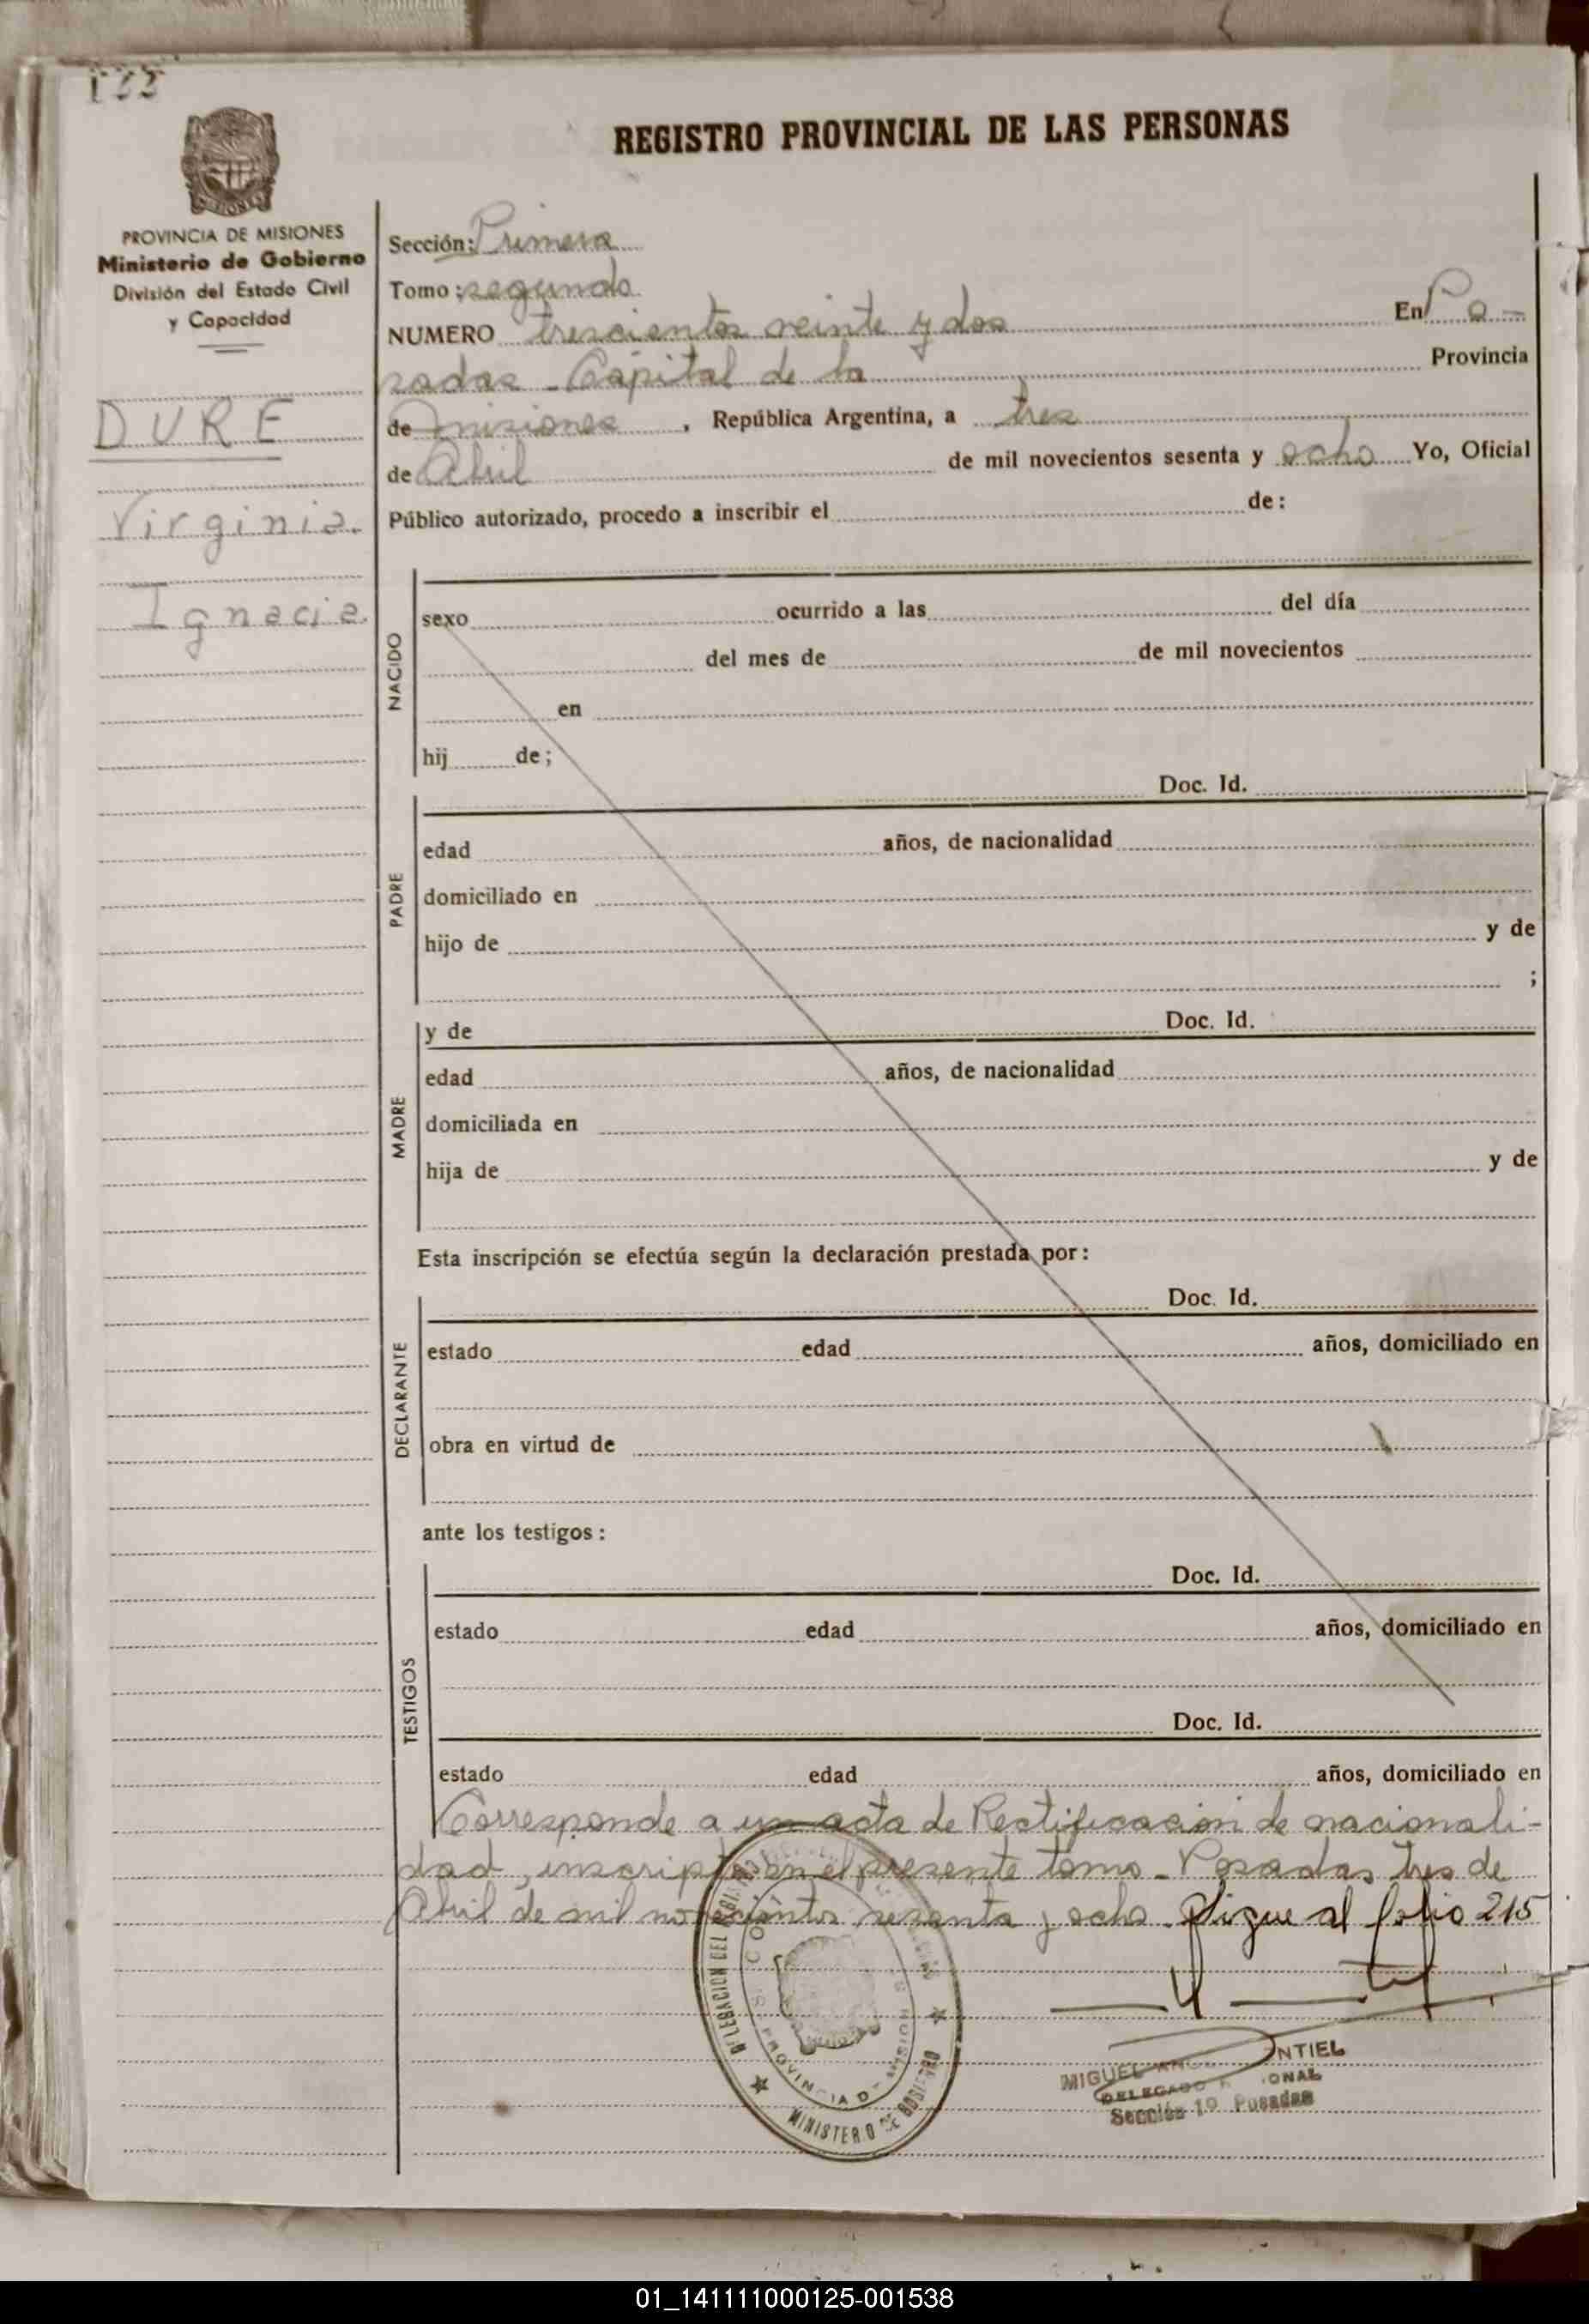 122
REGISTRO PROVINCIAL DE LAS PERSONAS
PROVINCIA DE MISIONES
Ministerio de Gobierno
División del Estado Civil
y Capacidad
DURE
Virginia
Ignacia
Sección: Primera
Tomo: segundo
NUMERO trescientos veinte y dos En Po-
sadas - Capital de la Provincia
de misiones, República Argentina, a tres
de Abril de mil novecientos sesenta y ocho Yo, Oficial
Público autorizado, procedo a inscribir el de:
NACIDO
sexo ocurrido a las del día
del mes de de mil novecientos
en
hij de;
Doc. Id.
PADRE
edad años, de nacionalidad
domiciliado en
hijo de y de
;
MADRE
y de Doc. Id.
edad años, de nacionalidad
domiciliada en
hija de y de
Esta inscripción se efectúa según la declaración prestada por:
DECLARANTE
Doc. Id.
estado edad años, domiciliado en
obra en virtud de
ante los testigos:
TESTIGOS
Doc. Id.
estado edad años, domiciliado en
Doc. Id.
estado edad años, domiciliado en
Corresponde a un acta de Rectificación de nacionali-
dad, inscripta en el presente tomo - Posadas tres de
Abril de mil novecientos sesenta y ocho. Sigue al folio 215
DELEGACION DEL
PROVINCIA DE MISIONES
MINISTERIO DE GOBIERNO
MIGUEL NTIEL
DELEGADO
Sección 1º Posadas
01_141111000125-001538